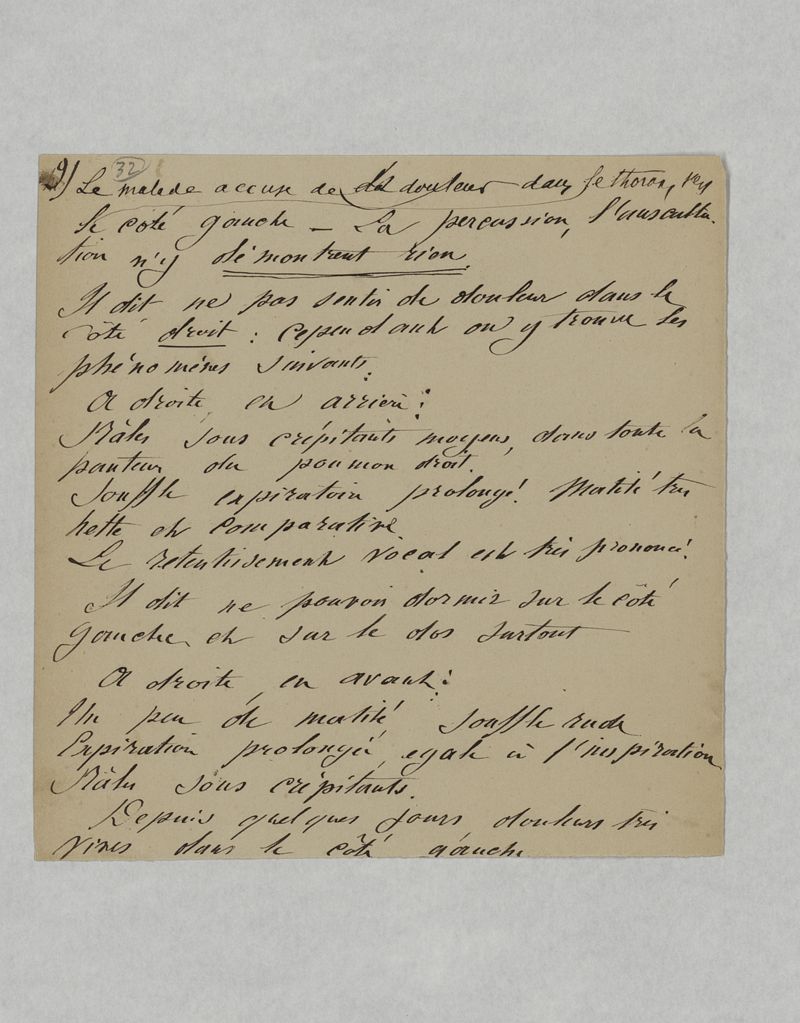 9) 32 Le malade accuse de la douleur dans le thorax, vers
le coté gauche – La percussion, l'ausculta-
tion n'y démontrent rien.
Il dit ne pas sentir de douleur dans le
côté droit : cependant on y trouve les
phénomènes suivants :
A droite, en arrière :
Râles sous crépitants moyens, dans toute la
hauteur du poumon droit.
Souffle expiratoire prolongé. Matité très
nette et comparative.
Le retentissement vocal est très prononcé.
Il dit ne pouvoir dormir sur le côté
gauche et sur le dos surtout
A droite, en avant :
Un peu de matité Souffle rude
Expiration prolongée, egale à l'inspiration
Râles sous crépitants.
Depuis quelques jours douleurs très
vives dans le côté gauche